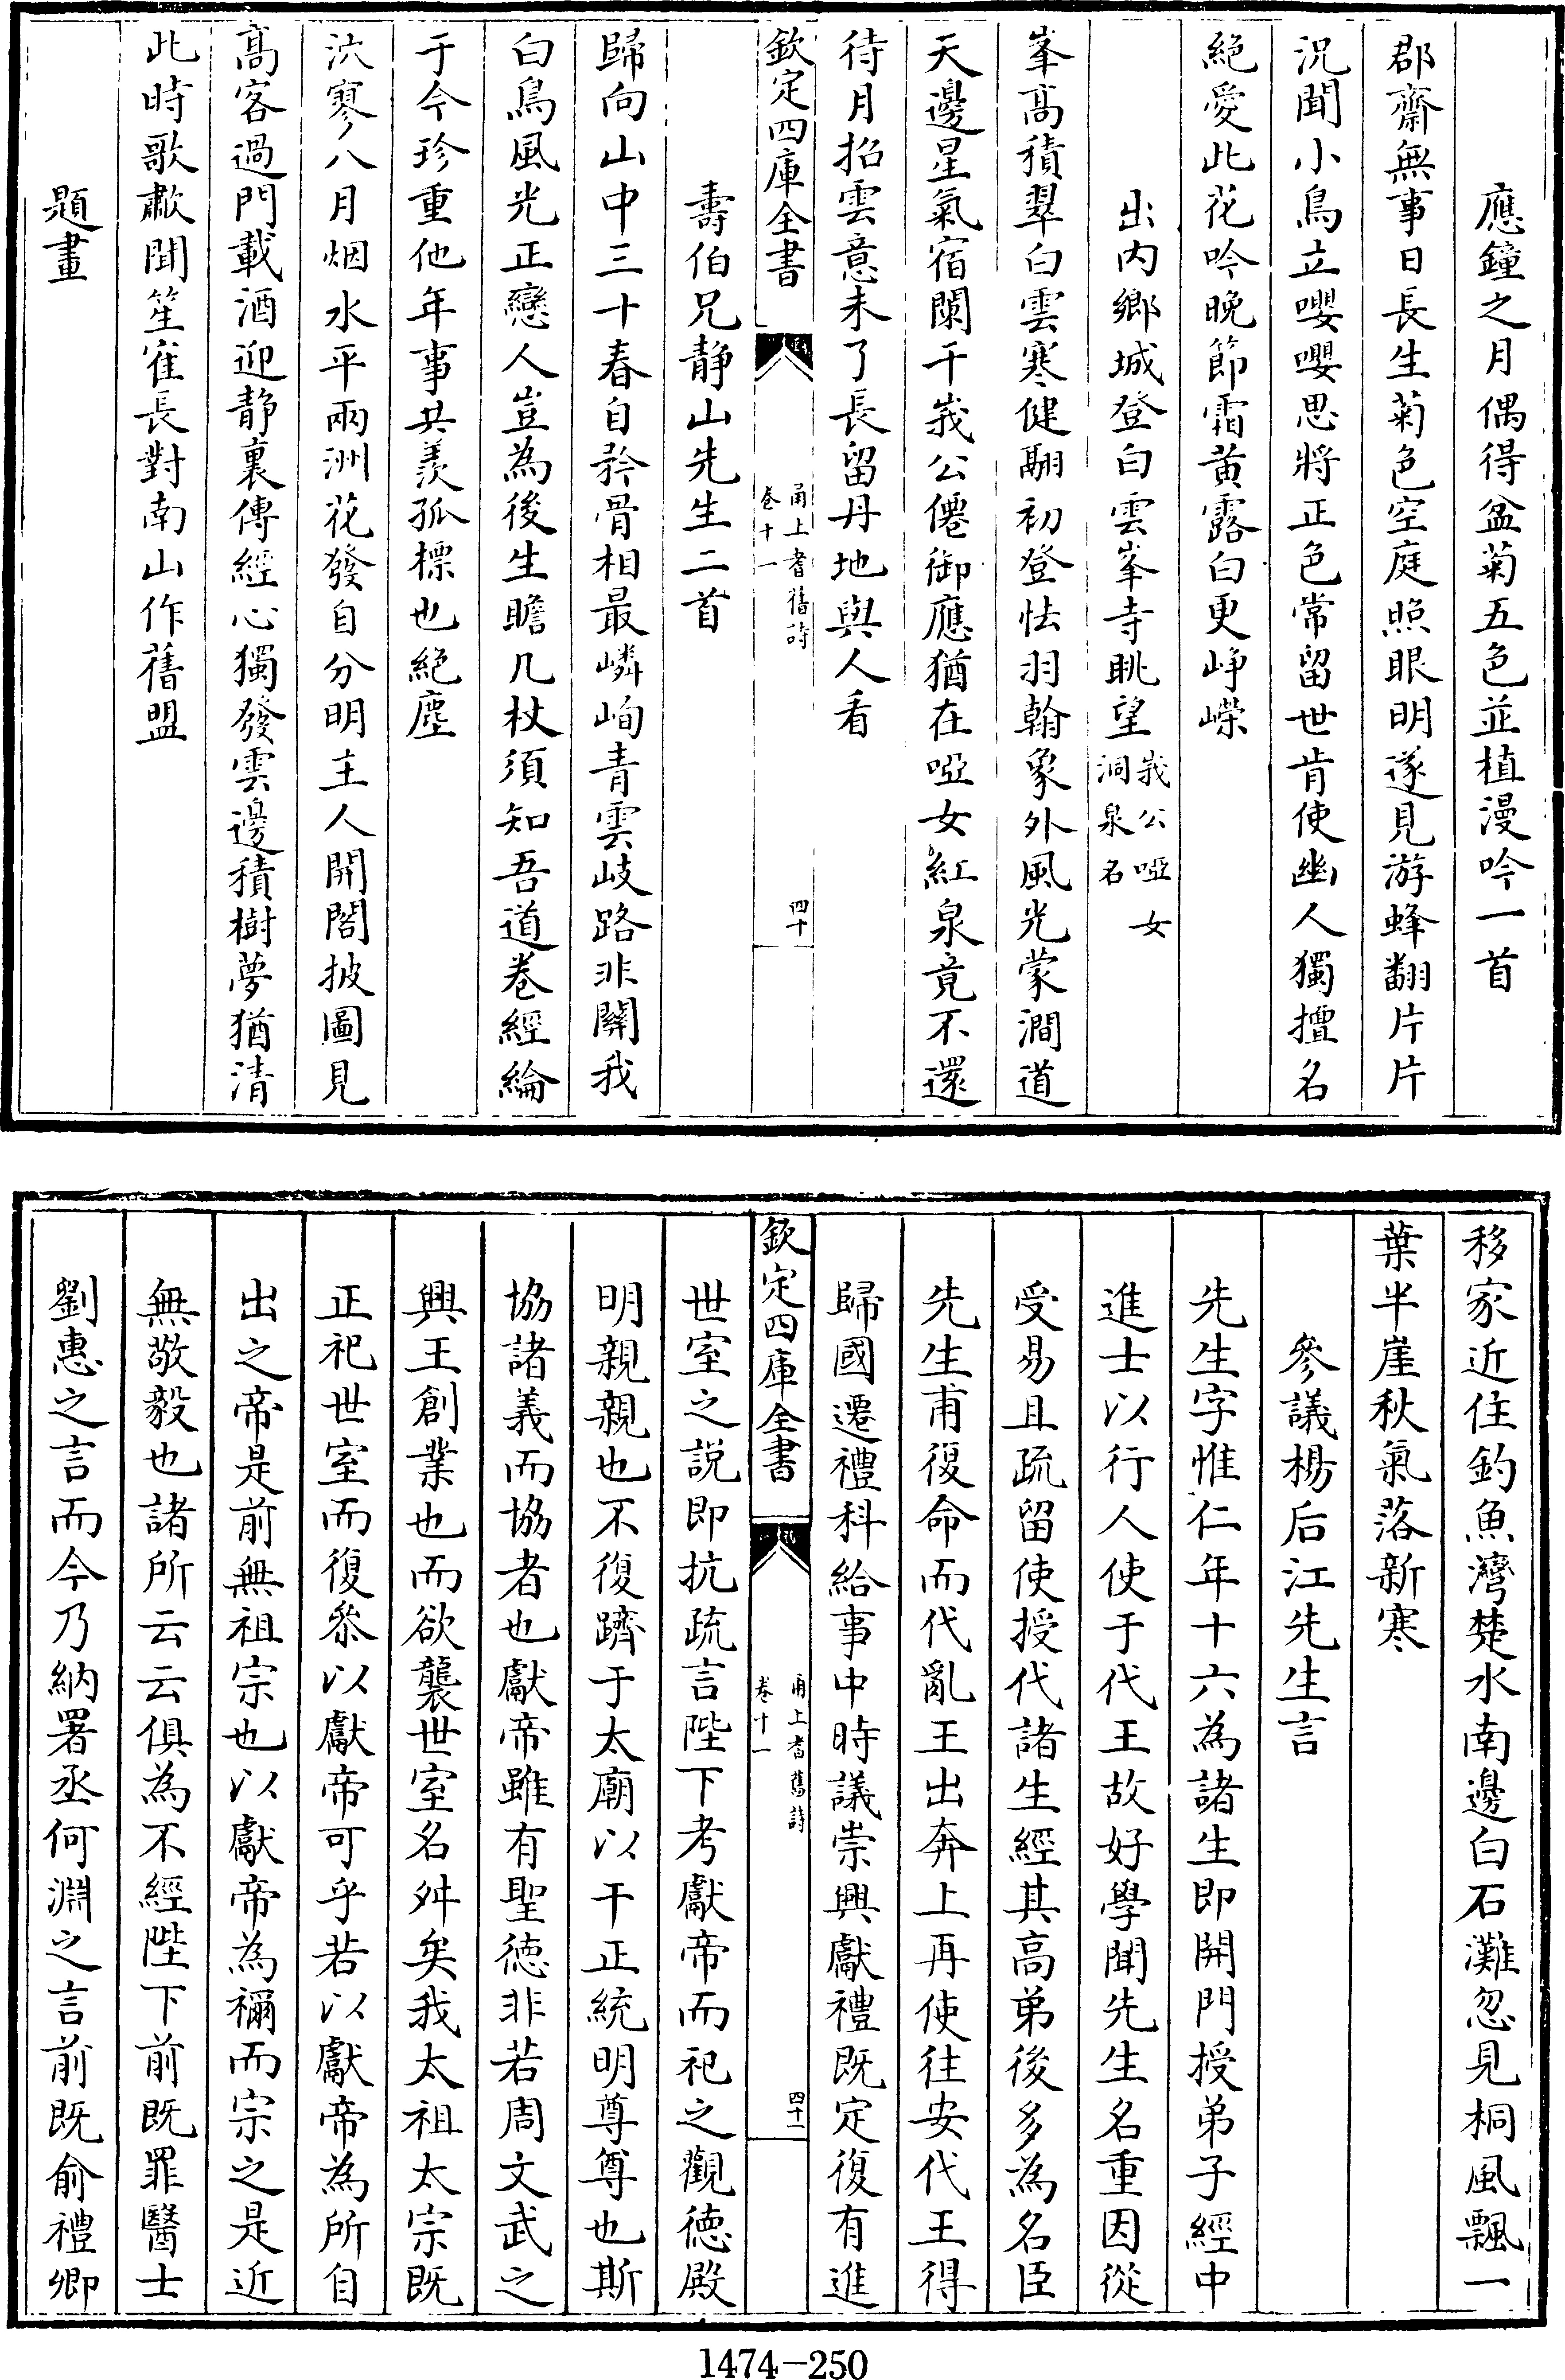 應鐘之月偶得盆菊五色並植漫吟一首
郡齋無事日長生菊色空庭照眼明遂見游蜂翻片片
況聞小鳥立嚶嚶思將正色常留世肯使幽人獨擅名
絕愛此花吟晚節霜黃露白更崢嶸
出内鄉城登白雲峯寺眺望峩公啞女洞泉名
峯高積翠白雲寒健翮初登怯羽翰象外風光蒙澗道
天邊星氣宿闌干峩公僊御應猶在啞女紅泉竟不還
待月招雲意未了長留丹地與人看
欽定四庫全書
甬上耆舊詩
卷十一
四十
壽伯兄静山先生二首
歸向山中三十春自矜骨相最嶙峋青雲岐路非關我
白鳥風光正戀人豈為後生瞻几杖須知吾道卷經綸
于今珍重他年事共羨孤標也絕塵
泬寥八月烟水平兩洲花發自分明主人開閤披圖見
高客過門載酒迎静裏傳經心獨發雲邊積樹夢猶清
此時歌歗聞笙隺長對南山作舊盟
題畫
移家近住釣魚灣楚水南邊白石灘忽見桐風飄一
葉半崖秋氣落新寒
參議楊后江先生言
先生字惟仁年十六為諸生即開門授弟子經中
進士以行人使于代王故好學聞先生名重因從
受易且疏留使授代諸生經其高弟後多為名臣
先生甫復命而代亂王出奔上再使往安代王得
歸國遷禮科給事中時議崇興獻禮既定復有進
欽定四庫全書
甬上耆舊詩
卷十一
四十一
世室之説即抗疏言陛下考獻帝而祀之觀德殿
明親親也不復躋于太廟以干正統明尊尊也斯
協諸義而協者也獻帝雖有聖德非若周文武之
興王創業也而欲襲世室名舛矣我太祖太宗既
正祀世室而復叅以獻帝可乎若以獻帝為所自
出之帝是前無祖宗也以獻帝為禰而宗之是近
無敬毅也諸所云云俱為不經陛下前既罪醫士
劉惠之言而今乃納署丞何淵之言前既俞禮卿
1474—250